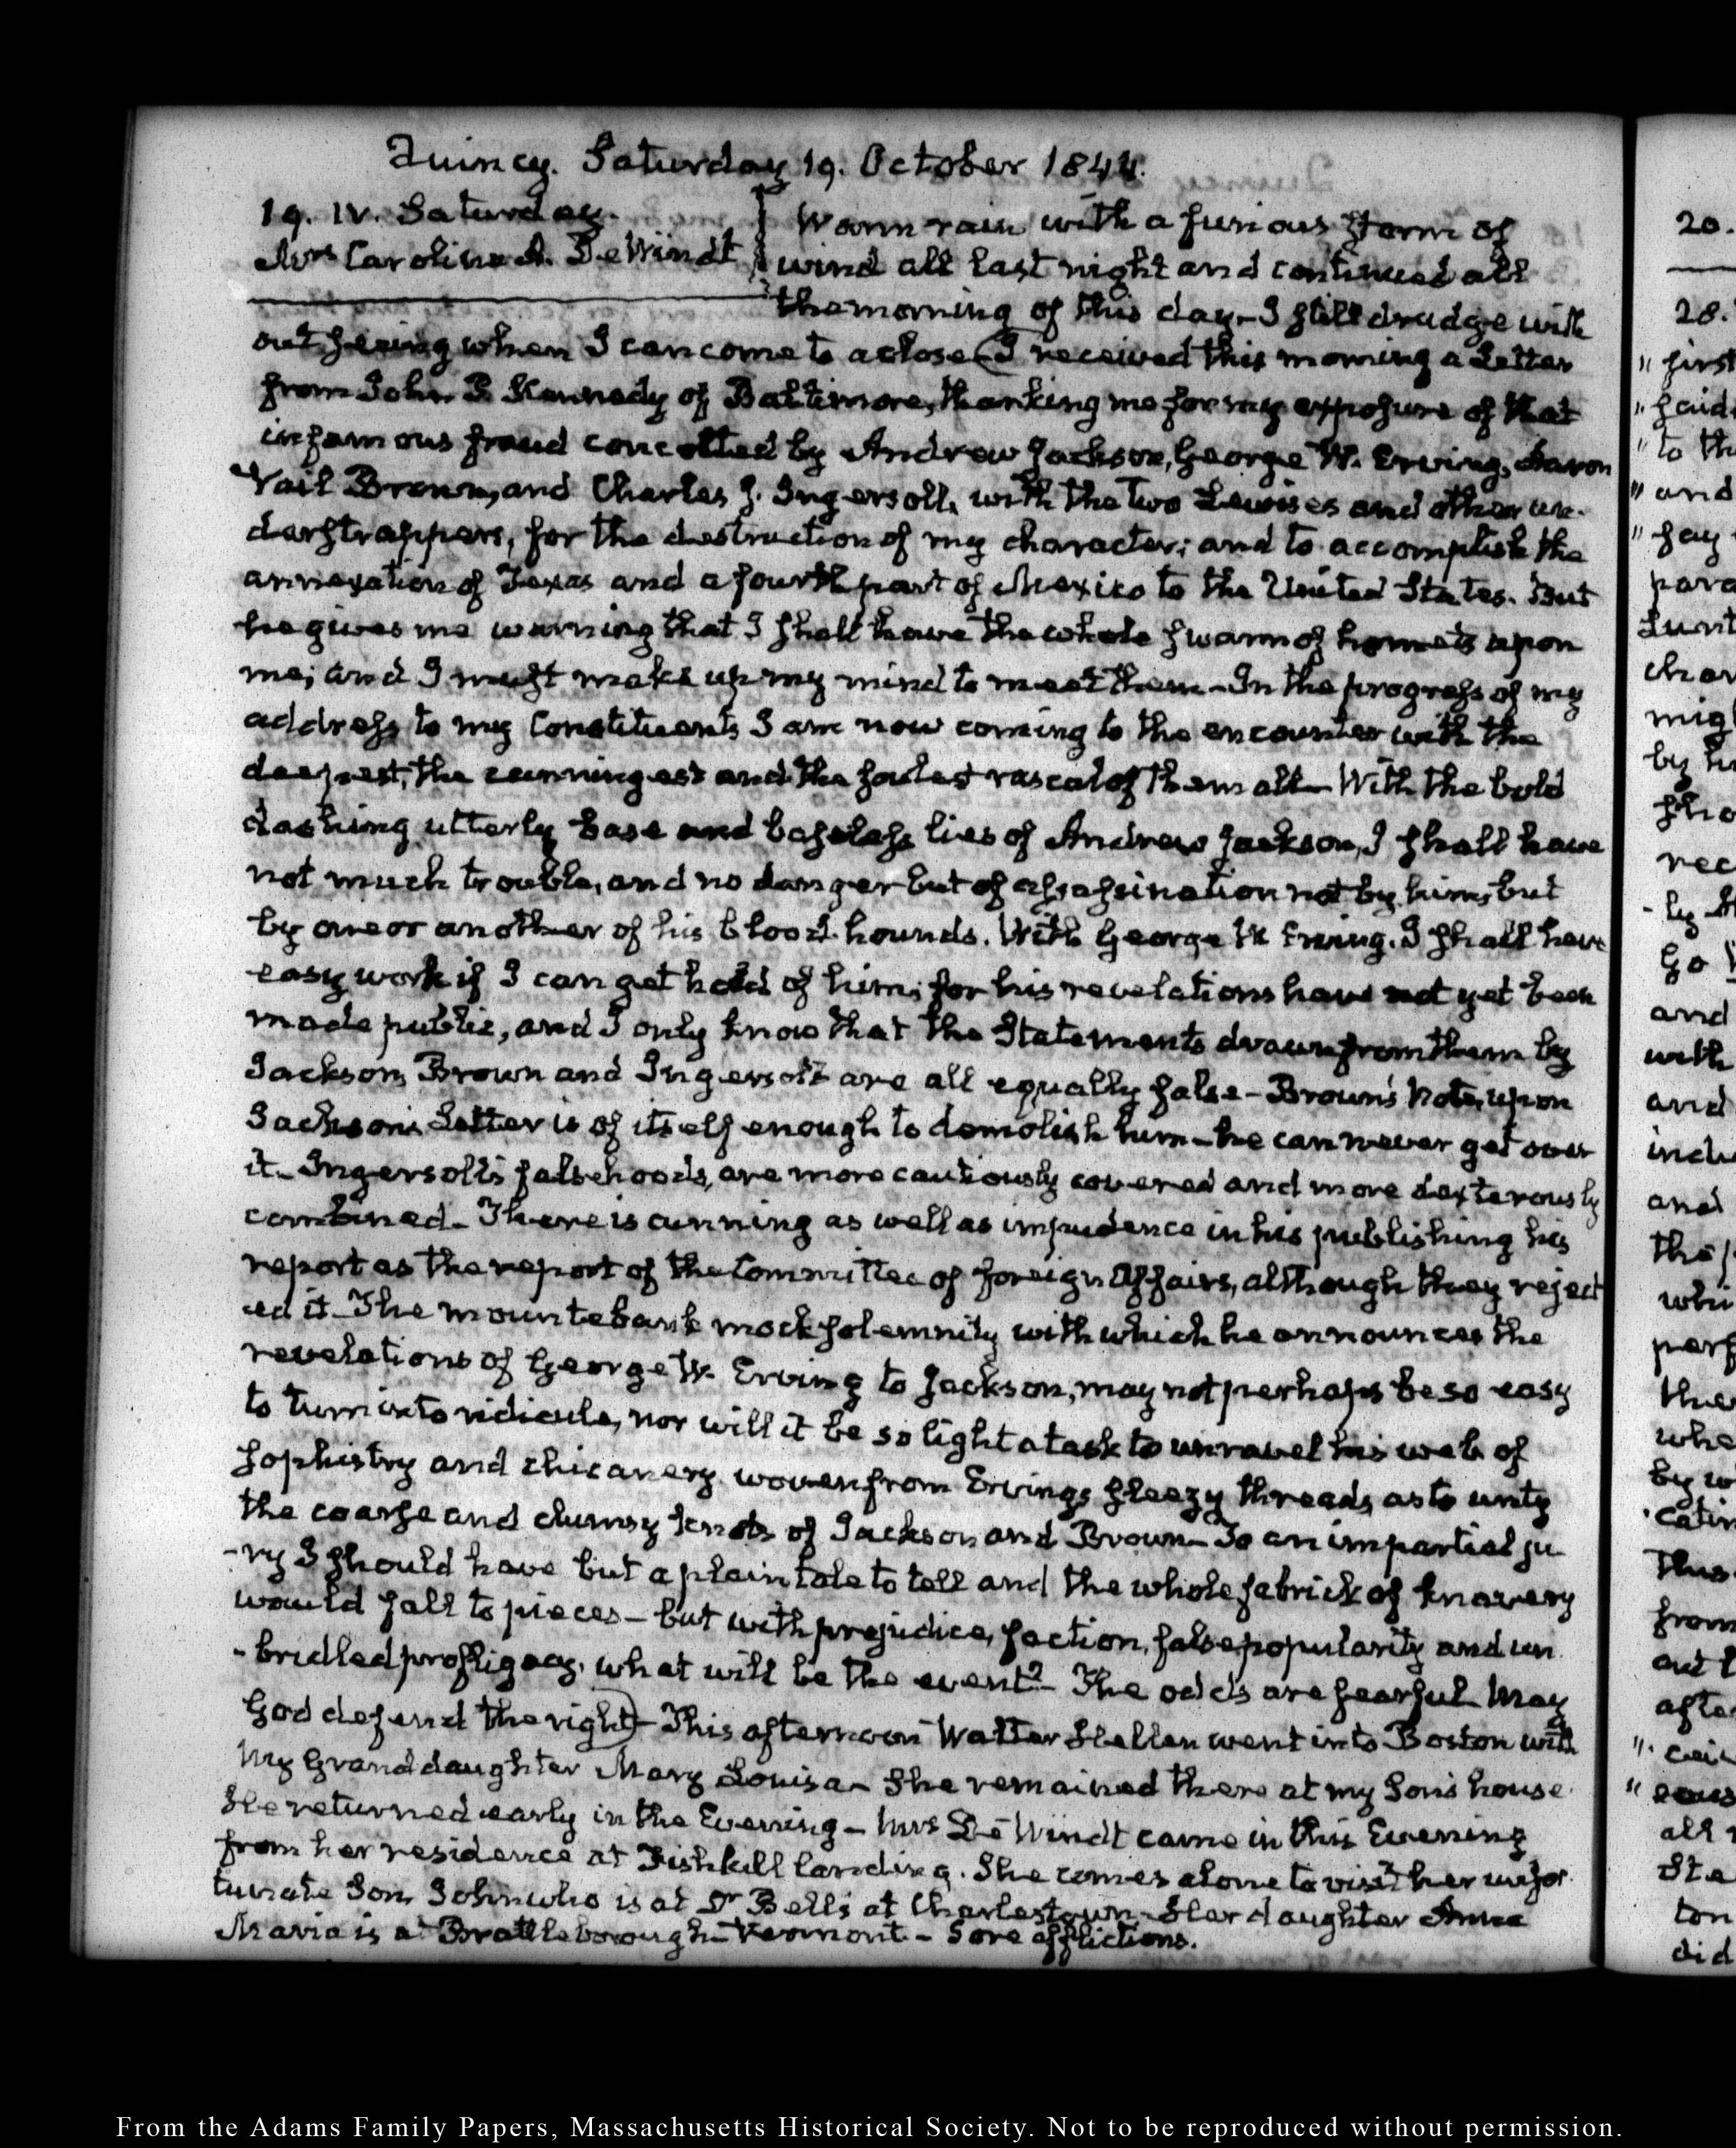 Quincy. Saturday 19. October 1844.
19. IV. Saturday.
Mrs Caroline A. De Windt
Warm rain with a furious storm of
wind all last night and continued all
the morning of this day – I still drudge with
out seeing when I can come to a close (I received this morning a Letter
from John P. Kennedy of Baltimore, thanking me for my exposure of that
infamous fraud concocted by Andrew Jackson, George W. Erving, Aaron
Vail Brown, and Charles J. Ingersoll, with the two Lewises and other un-
derstrappers, for the destruction of my character; and to accomplish the
annexation of Texas and a fourth part of Mexico to the United States. But
he gives me warning that I shall have the whole swarm of hornets upon
me; and I must make up my mind to meet them – In the progress of my
address to my Constituents I am now coming to the encounter with the
deepest, the cunningest and the rascal of them all – With the bold
dashing utterly base and baseless lies of Andrew Jackson, I shall have
not much trouble, and no danger but of assassination not by him, but
by one or another of his blood-hounds. With George W. Erving. I shall have
easy work if I can get hold of him; for his revelations have not yet been
made public, and I only know that the Statements drawn from them by
Jackson, Brown and Ingersoll are all equally false – Brown's Note, upon
Jackson's Letter is of itself enough to demolish him – he can never get over
it – Ingersoll's falsehoods, are more cautiously covered and more dexterously
combined – There is cunning as well as impudence in his publishing his
report as the report of the Committee of foreign Affairs, although they reject
ed it – The mountebank mock solemnity with which he announces the
revelations of George W. Erving to Jackson, may not perhaps be so easy
to turn into ridicule, nor will it be so light a task to unravel his web of
sophistry and chicanery woven from Ervings sleezy threads, as to unty
the coarse and clumsy knots of Jackson and Brown – To an impartial ju
-ry I should have but a plain tale to tell and the whole fabrick of knavery
would fall to pieces – but with prejudice, faction, false popularity and un
-bridled profligacy, what will be the event? – The odds are fearful – May
God defend the right) – This afternoon Walter Hellen went into Boston with
my Grand daughter Mary Louisa – She remained there at my Son's house
He returned early in the Evening – Mrs De Windt came in this Evening
from her residence at Fishkill landing. She comes alone to visit her unfor
tunate Son, John who is at Dr Bell's at Charlestown – Her daughter Anna
Maria is at Brattleborough – Vermont – Sore afflictions.
20.
28.
" first
" said
" to th
" and
" say
para
char
mig
by hi
sho
rec
- by
Go
and
with
and
indu
and
the
whi
perf
the
whe
by w
Thus
from
out
afte
all
Sta
ton
did
From the Adams Family Papers, Massachusetts Historical Society. Not to be reproduced without permission.